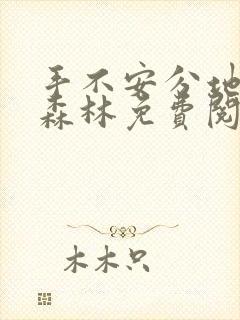 手不安分地
森林免费阅
木木只